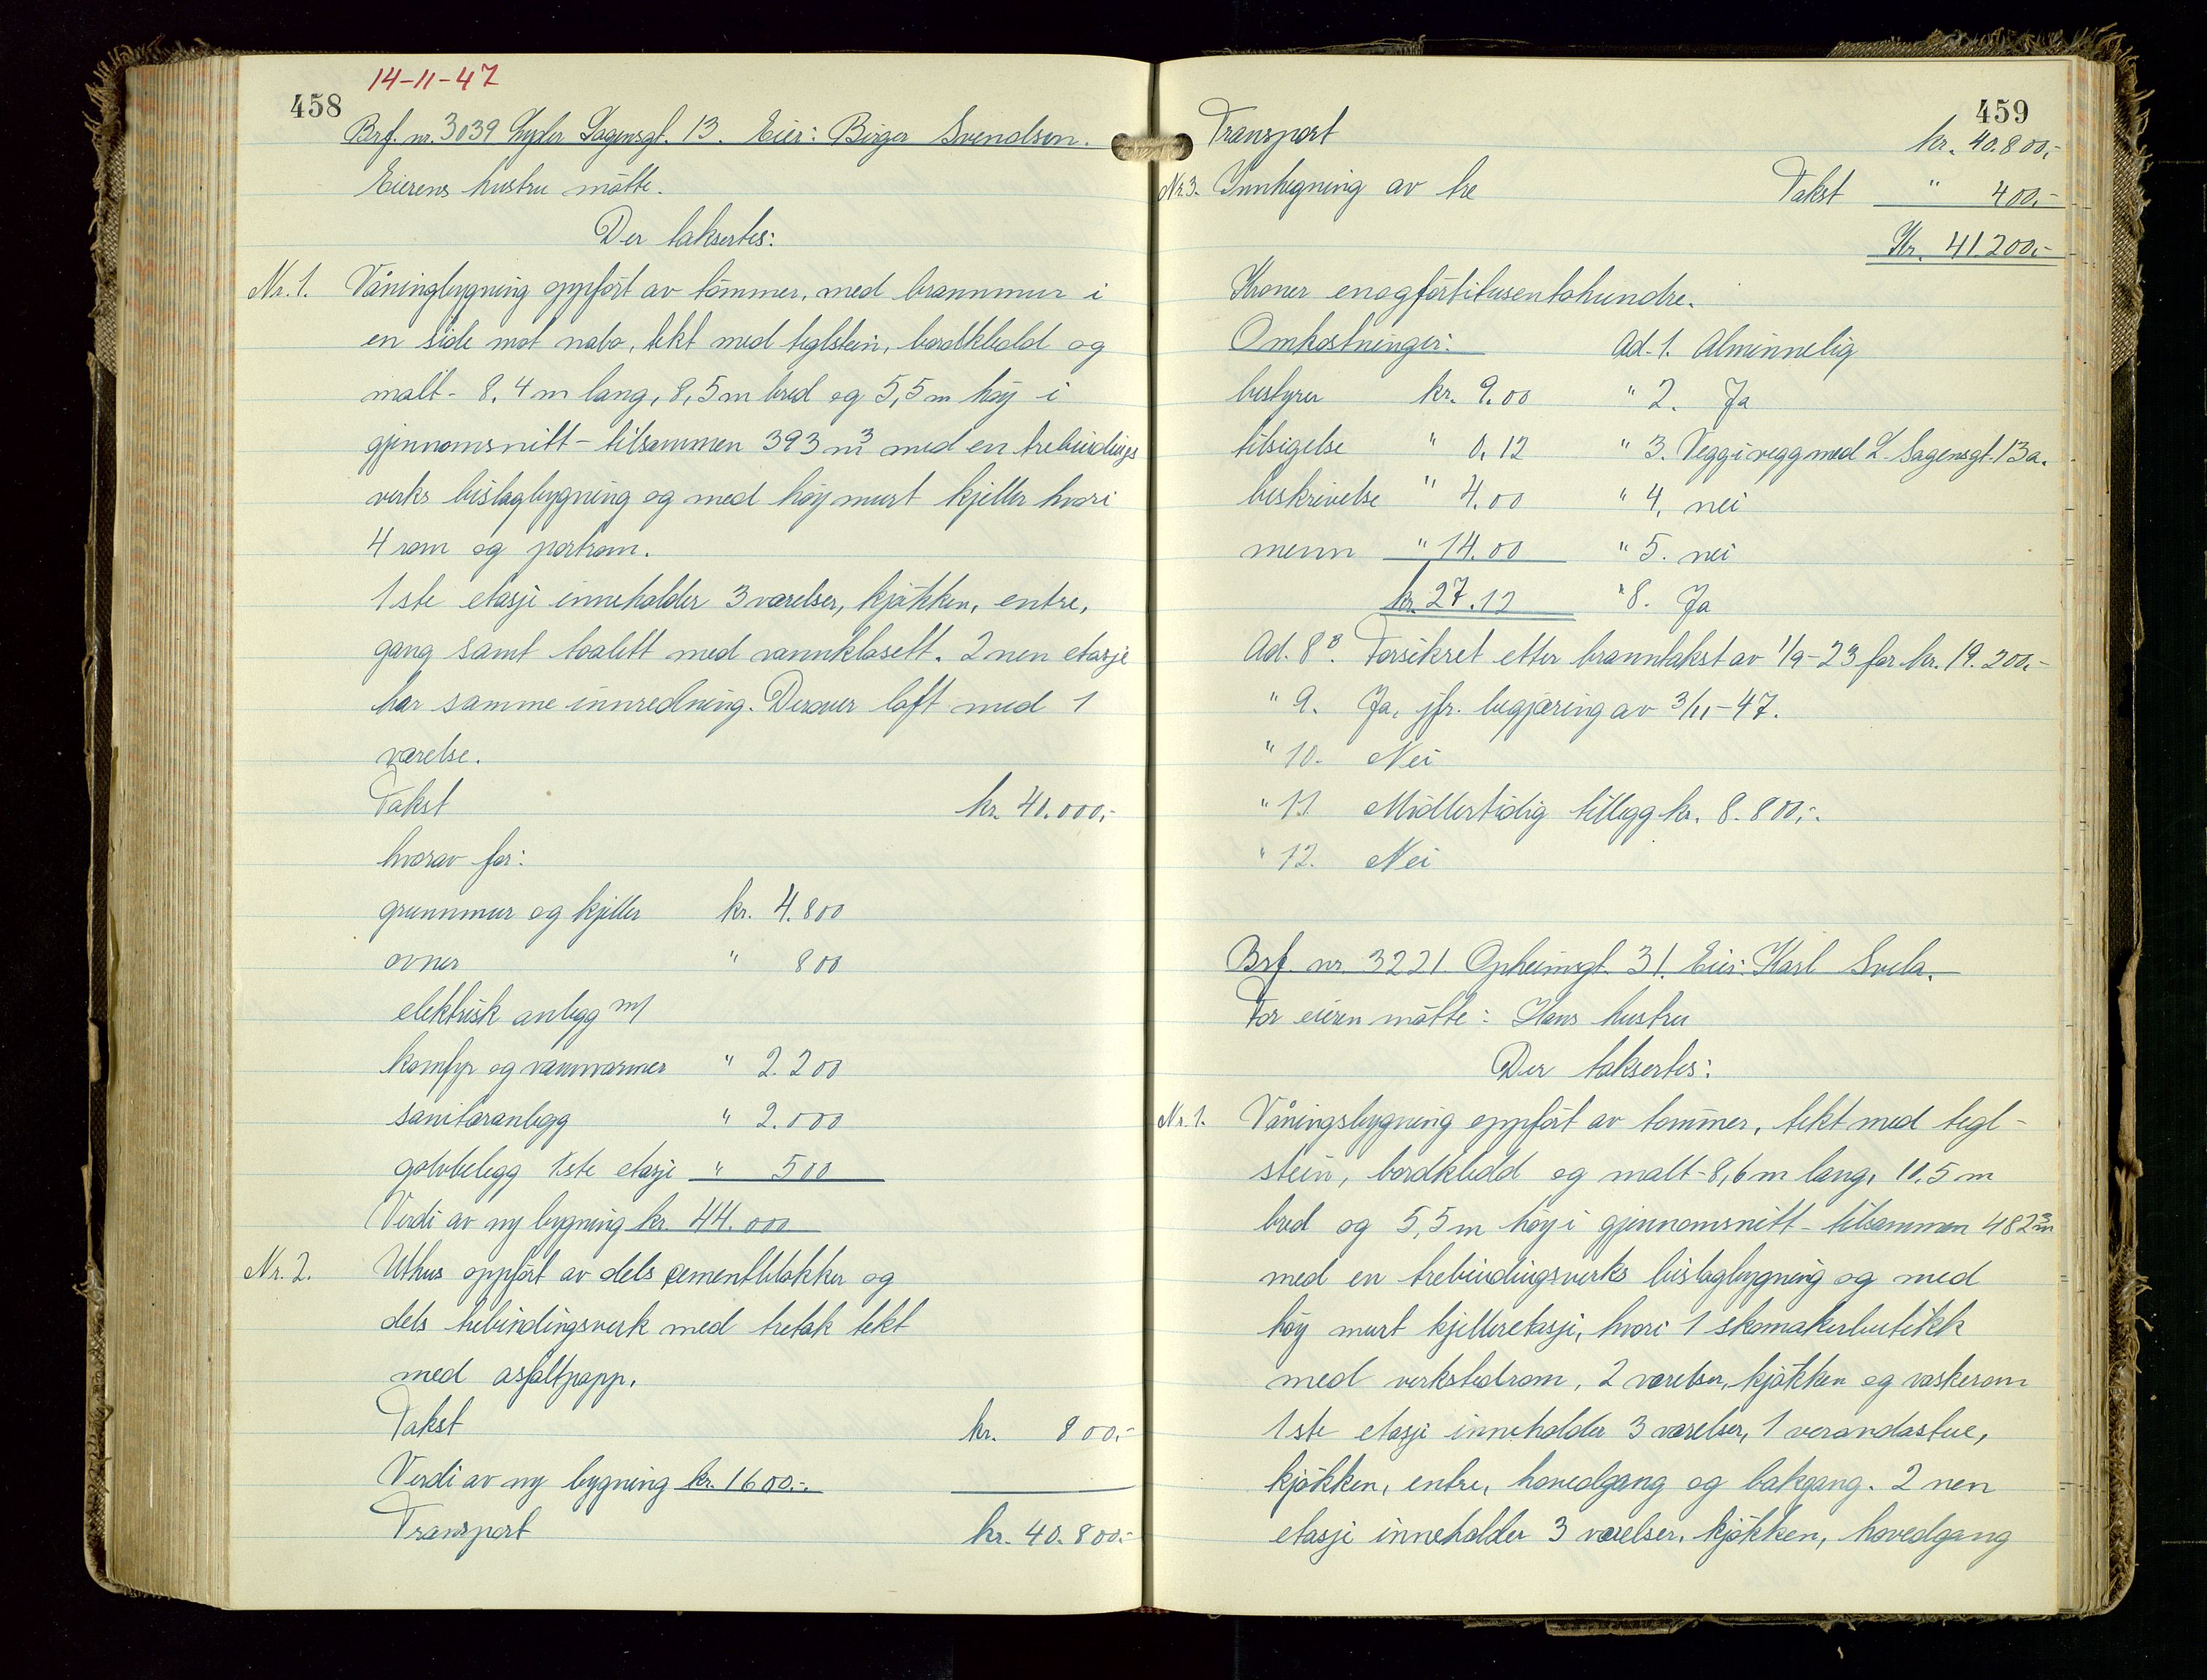 14-11-47
458
Brf. nr. 3039 Lyder Sagensgt. 13. Eier: Birger Svendsen.
Eierens hustru møtte.
Der taksertes:
Nr. 1. Våningbygning oppført av tømmer, med brannmur i
en side mot nabo, tekt med teglstein, bordkledd og
malt - 8,4 m lang, 8,5 m bred og 5,5 m høy i
gjennomsnitt - tilsammen 393 m³ med en trebindings
verks bislagbygning og med høy murt kjeller hvori
4 rom og portrom.
1ste etasje inneholder 3 værelser, kjøkken, entre,
gang samt toalett med vannklosett. 2nen etasje
har samme innredning. Derover loft med 1
værelse.
Takst kr. 40.000,-
hvorav for:
grunnmur og kjeller kr. 4.800
ovner " 800
elektrisk anlegg m/
komfyr og vannvarmer " 2.200
sanitæranlegg " 2.000
golvbelegg 1ste etasje " 500
Verdi av ny bygning kr. 44.000
Nr. 2. Uthus oppført av dels cementblokker og
dels trebindingsverk med tretak tekt
med asfaltpapp.
Takst kr. 800.-
Verdi av ny bygning kr. 1600.-
Transport kr. 40.800.-
459
Transport kr. 40.800,-
Nr. 3. Innhegning av tre Takst " 400.-
Kr. 41.200.-
Kroner enogførtitusentohundre.
Omkostninger: Ad. 1. Alminnelig
bestyrer kr. 9.00 " 2. Ja
tilsigelse " 0.12 " 3. Vegg i vegg med L. Sagensgt. 13a.
beskrivelse " 4.00 " 4. nei
menn " 14.00 " 5. nei
kr. 27.12 " 8. Ja
Ad. 8⁸. Forsikret etter branntakst av 1/9-23 for kr. 19.200.-
" 9. Ja, jfr. begjæring av 3/11-47.
" 10. Nei
" 11. Midlertidig tillegg kr. 8.800,-.
" 12. Nei
Brf. nr. 3221 Opheimsgt. 31. Eier: Karl Svela.
For eieren møtte: Hans hustru
Der taksertes:
Nr. 1. Våningsbygning oppført av tømmer, tekt med tegl-
stein, bordkledd og malt - 8,6 m lang, 10,5 m
bred og 5,5 m høy i gjennomsnitt - tilsammen 482 m³
med en trebindingsverks bislagbygning og med
høy murt kjelleretasje, hvori 1 skomakerbutikk
med verkstedrom, 2 værelser, kjøkken og vaskerom
1ste etasje inneholder 3 værelser, 1 verandastue,
kjøkken, entre, hovedgang og bakgang. 2nen
etasje inneholder 3 værelser, kjøkken, hovedgang